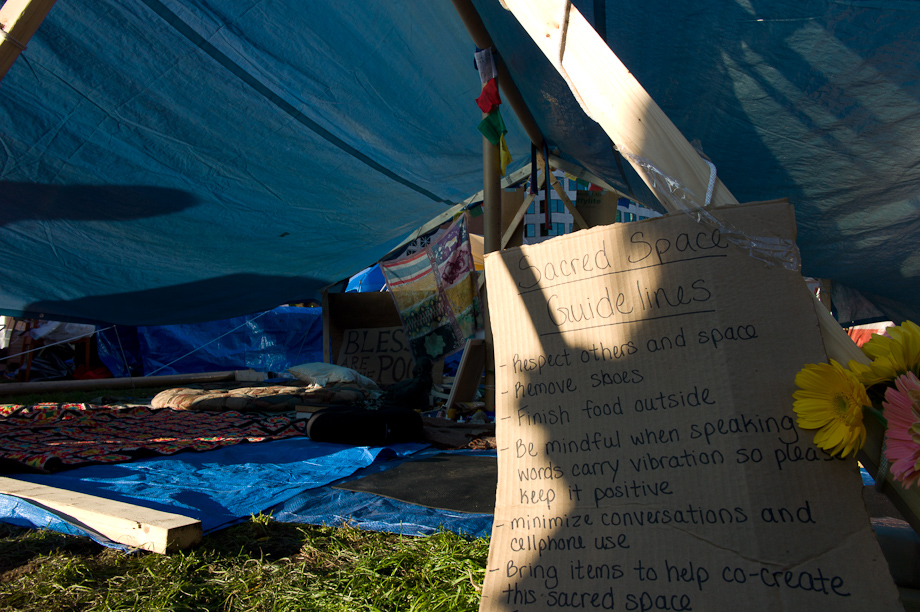 Sacred Space
Guidelines
- Respect others and space
- Remove shoes
- Finish food outside
- Be mindful when speaking
words carry vibration so pleas
keep it positive
- minimize conversations and
cellphone use
- Bring items to help co-create
this sacred space
BLES
ARE
POO